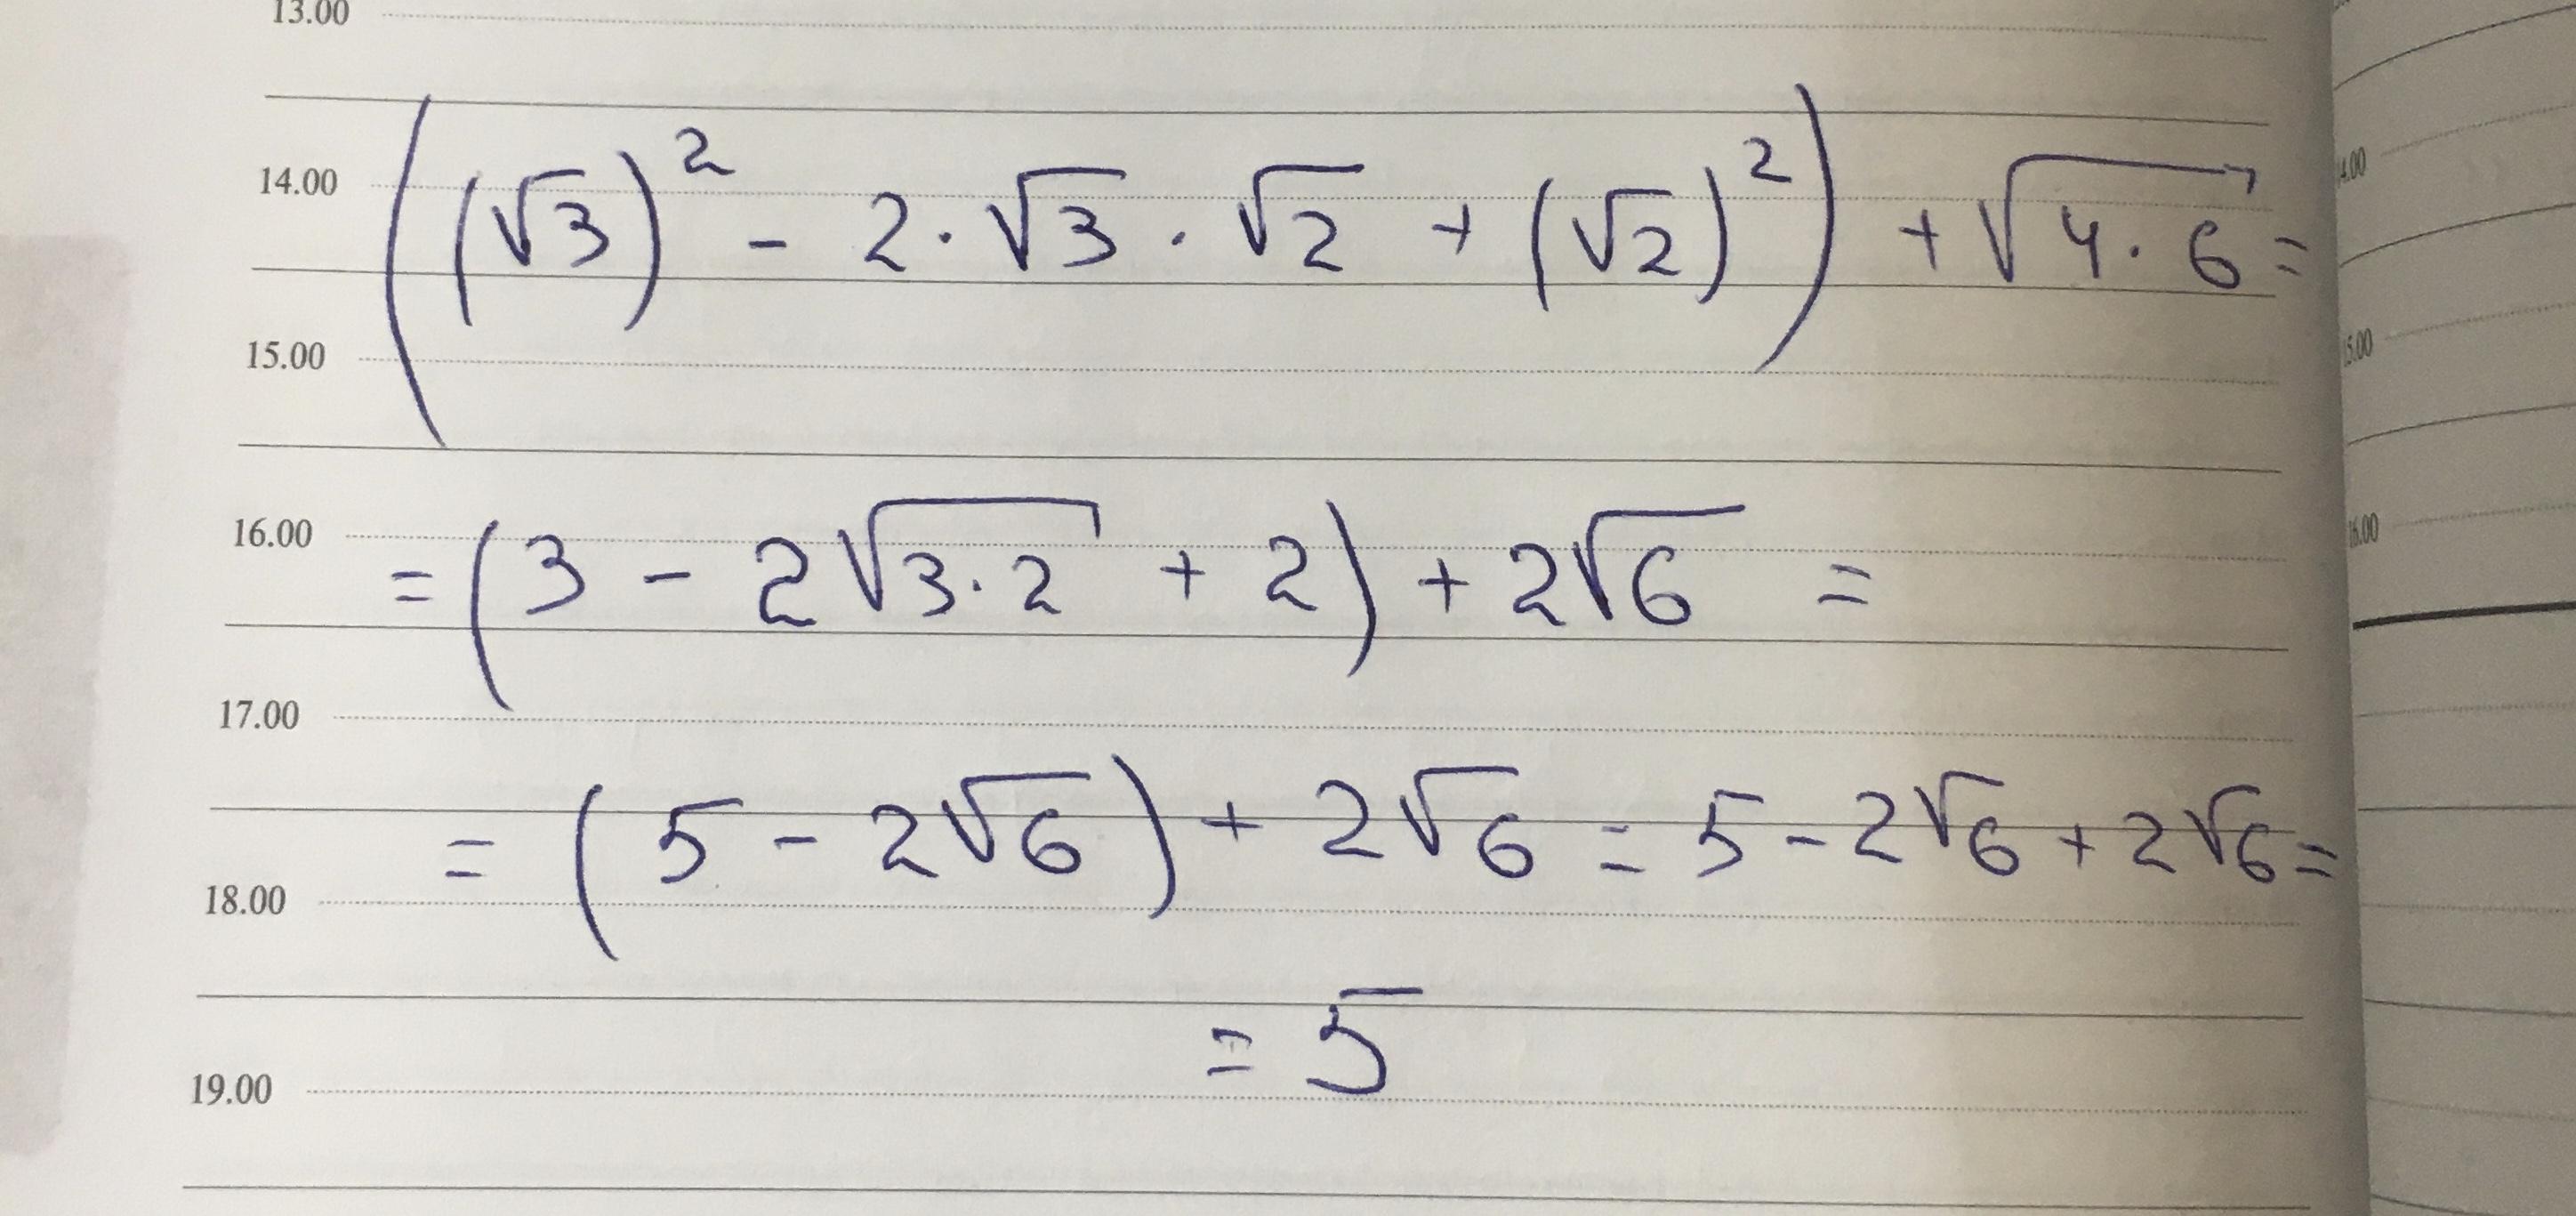 13.00
14.00 ((√3)² - 2·√3·√2 + (√2)²) + √4·6 =
15.00
16.00 = (3 - 2√3·2 + 2) + 2√6 =
17.00
= (5 - 2√6) + 2√6 = 5 - 2√6 + 2√6 =
18.00
= 5
19.00
14.00
15.00
16.00